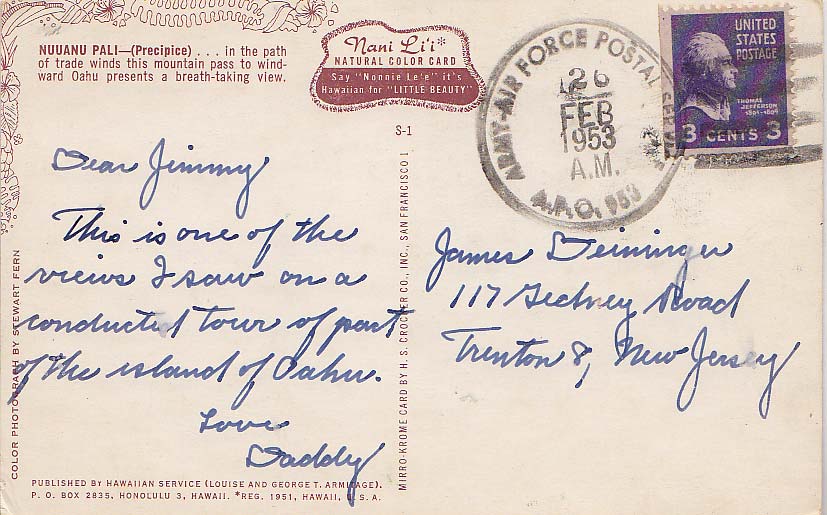 NUUANU PALI—(Precipice) . . . in the path
of trade winds this mountain pass to wind-
ward Oahu presents a breath-taking view.
Nani Li'i*
NATURAL COLOR CARD
Say "Nonnie Le'e" it's
Hawaiian for "LITTLE BEAUTY"
S-1
ARMY-AIR FORCE POSTAL
26
FEB
1953
A.M.
A.P.O. 953
UNITED
STATES
POSTAGE
THOMAS
JEFFERSON
1801-1809
3 CENTS 3
Dear Jimmy
This is one of the
views I saw on a
conducted tour of part
of the island of Oahu.
Love
Daddy
James Deininger
117 Gedney Road
Trenton 8, New Jersey
COLOR PHOTOGRAPH BY STEWART FERN
MIRRO-KROME CARD BY H. S. CROCKER CO., INC., SAN FRANCISCO 1
PUBLISHED BY HAWAIIAN SERVICE (LOUISE AND GEORGE T. ARMITAGE).
P. O. BOX 2835, HONOLULU 3, HAWAII. *REG. 1951, HAWAII, U. S. A.